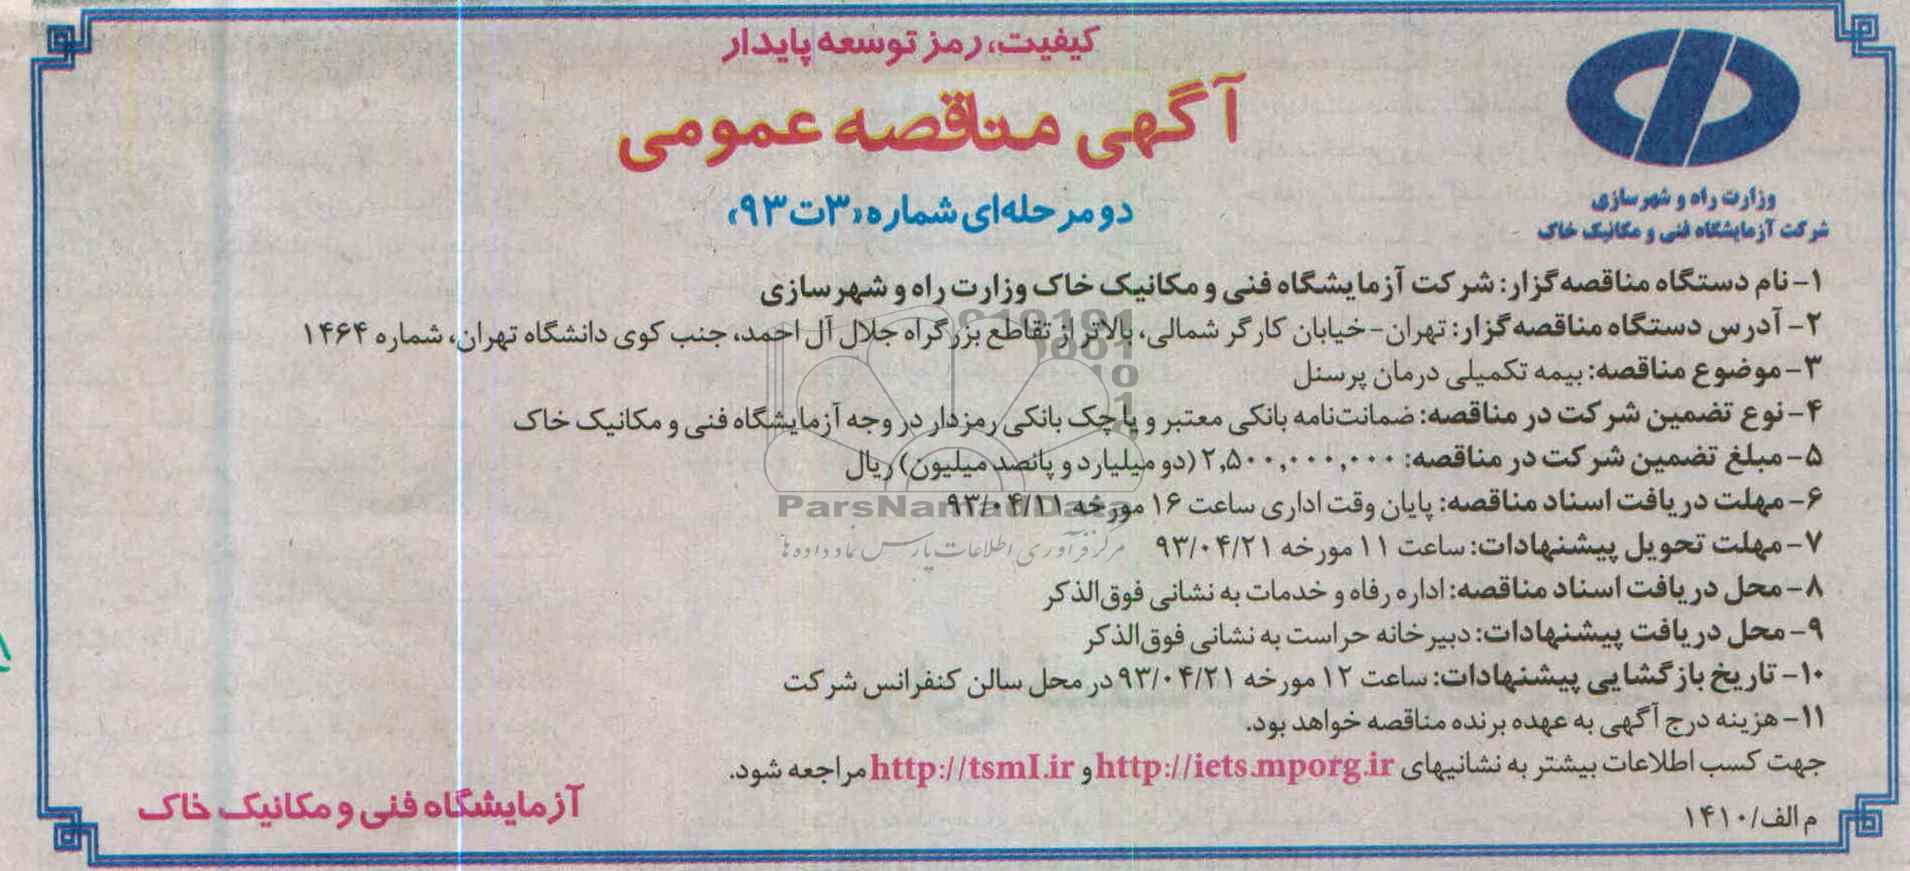 کیفیت، رمز توسعه پایدار
آگهی مناقصه عمومی
دو مرحله‌ای شماره «۳ت۹۳»
وزارت راه و شهرسازی
شرکت آزمایشگاه فنی و مکانیک خاک
۱- نام دستگاه مناقصه‌گزار: شرکت آزمایشگاه فنی و مکانیک خاک وزارت راه و شهرسازی
۲- آدرس دستگاه مناقصه‌گزار: تهران - خیابان کارگر شمالی، بالاتر از تقاطع بزرگراه جلال آل احمد، جنب کوی دانشگاه تهران، شماره ۱۴۶۴
۳- موضوع مناقصه: بیمه تکمیلی درمان پرسنل
۴- نوع تضمین شرکت در مناقصه: ضمانت‌نامه بانکی معتبر و یا چک بانکی رمزدار در وجه آزمایشگاه فنی و مکانیک خاک
۵- مبلغ تضمین شرکت در مناقصه: ۲,۵۰۰,۰۰۰,۰۰۰ (دو میلیارد و پانصد میلیون) ریال
۶- مهلت دریافت اسناد مناقصه: پایان وقت اداری ساعت ۱۶ مورخه ۹۳/۰۴/۱۱
ParsNamadData
۷- مهلت تحویل پیشنهادات: ساعت ۱۱ مورخه ۹۳/۰۴/۲۱
مرکز فرآوری اطلاعات پارس نماد داده ها
۸- محل دریافت اسناد مناقصه: اداره رفاه و خدمات به نشانی فوق‌الذکر
۹- محل دریافت پیشنهادات: دبیرخانه حراست به نشانی فوق‌الذکر
۱۰- تاریخ بازگشایی پیشنهادات: ساعت ۱۲ مورخه ۹۳/۰۴/۲۱ در محل سالن کنفرانس شرکت
۱۱- هزینه درج آگهی به عهده برنده مناقصه خواهد بود.
جهت کسب اطلاعات بیشتر به نشانیهای http://iets.mporg.ir و http://tsmI.ir مراجعه شود.
آزمایشگاه فنی و مکانیک خاک
م الف/۱۴۱۰